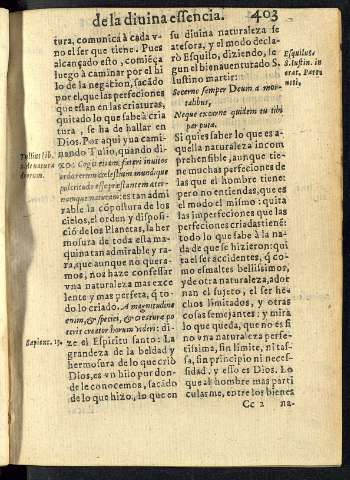 de la diuina essencia. 403
tura, comunicà à cada v-
no el ser que tiene. Pues
alcançado esto, comiẽça
luego à caminar por el hi
lo de la negacion, sacādo
por el, que las perfeciones
que estan en las criaturas,
quitado lo que sabe à cria
tura, se ha de hallar en
Dios. Por aqui yua cami
nando Tulio, quando di-
xo: Cogit etiam fateri inuitos
ordo rerum cœlestium mundique
pulcritudo esse præstantem æter
namque naturam: es tan admi
rable la cōpostura de los
cielos, el orden y disposiciō
de los Planetas, la her
mosura de toda esta ma-
quina tan admirable y ra-
ra, que aunque no quera-
mos, nos haze confessar
vna naturaleza mas exce
lente y mas perfeta, q̃ to
do lo criado. A magnitudine
enim, & speciei, & creaturæ po
terit creator horum videri: di-
ze el Espiritu santo: La
grandeza de la beldad y
hermosura de lo que criò
Dios, es vn hilo por don-
de le conocemos, sacādo
de lo que hizo, lo que en
Tullius lib.
2. de natura
deorum.
Sapient. 13.
su diuina naturaleza se
atesora, y el modo decla-
rò Esquilo, diziendo, se-
gun el bienauenturado S.
Iustino martir:
Secerne semper Deum à mor-
talibus,
Neque externe quidem eu tibi
par puta.
Si quies saber lo que es a-
quella naturaleza incom
prehensible, aunque tie-
ne muchas perfeciones de
las que el hombre tiene:
pero no entiendas, que es
el modo el mismo: quita
las imperfeciones que las
perfeciones criadas tienē:
todo lo que sabe à la na-
da de que se hizieron: qui
ta el ser accidentes, q̃ co-
mo esmaltes bellissimos,
y de otra naturaleza, ador
nan el sujeto, el ser he-
chos limitados, y otras
cosas semejantes: y mira
lo que queda, que no es si
no vna naturaleza perfe-
tissima, sin limite, ni tassa,
sin principio ni neces-
sidad, y esso es Dios. Lo
que al hombre mas parti
cularme, entre los bienes
Esquilus,
S. Iustin. in
orat. Paræ
neti,
Cc 2 na-